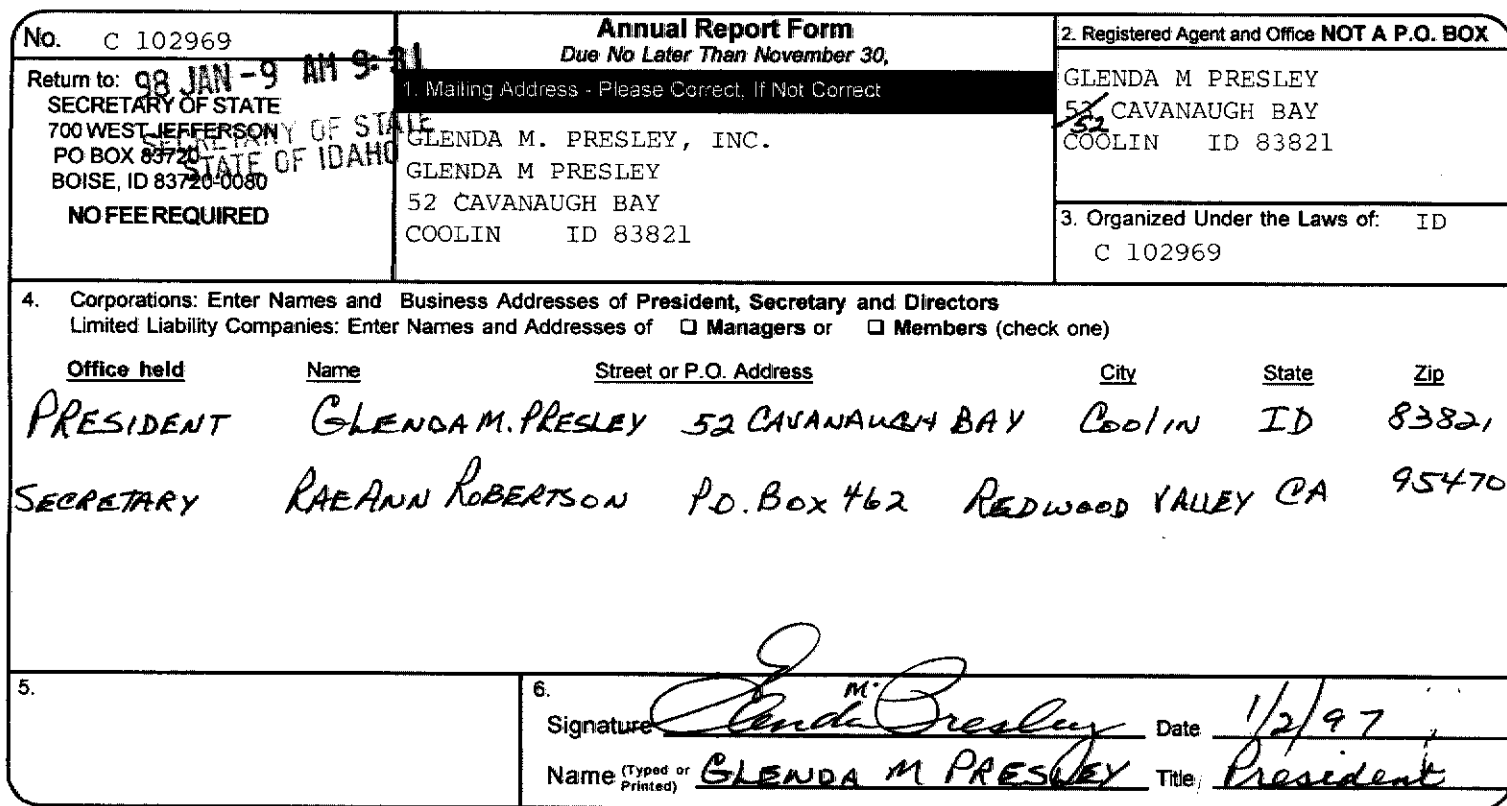 No. C 102969
Return to: 98 JAN -9 AM 9:31
SECRETARY OF STATE
700 WEST JEFFERSON
PO BOX 83720
BOISE, ID 83720-0080
SECRETARY OF STATE
STATE OF IDAHO
NO FEE REQUIRED
Annual Report Form
Due No Later Than November 30,
1. Mailing Address - Please Correct, If Not Correct
GLENDA M. PRESLEY, INC.
GLENDA M PRESLEY
52 CAVANAUGH BAY
COOLIN ID 83821
2. Registered Agent and Office NOT A P.O. BOX
GLENDA M PRESLEY
CAVANAUGH BAY
52
COOLIN ID 83821
3. Organized Under the Laws of: ID
C 102969
4. Corporations: Enter Names and Business Addresses of President, Secretary and Directors
Limited Liability Companies: Enter Names and Addresses of ❑ Managers or ❑ Members (check one)
Office held Name Street or P.O. Address City State Zip
PRESIDENT GLENDA M. PRESLEY 52 CAVANAUGH BAY COOLIN ID 83821
SECRETARY RAEANN ROBERTSON P.O. BOX 462 REDWOOD VALLEY CA 95470
5.
6.
Signature Glenda M. Presley Date 1/2/97
Name (Typed or Printed) GLENDA M PRESLEY Title President